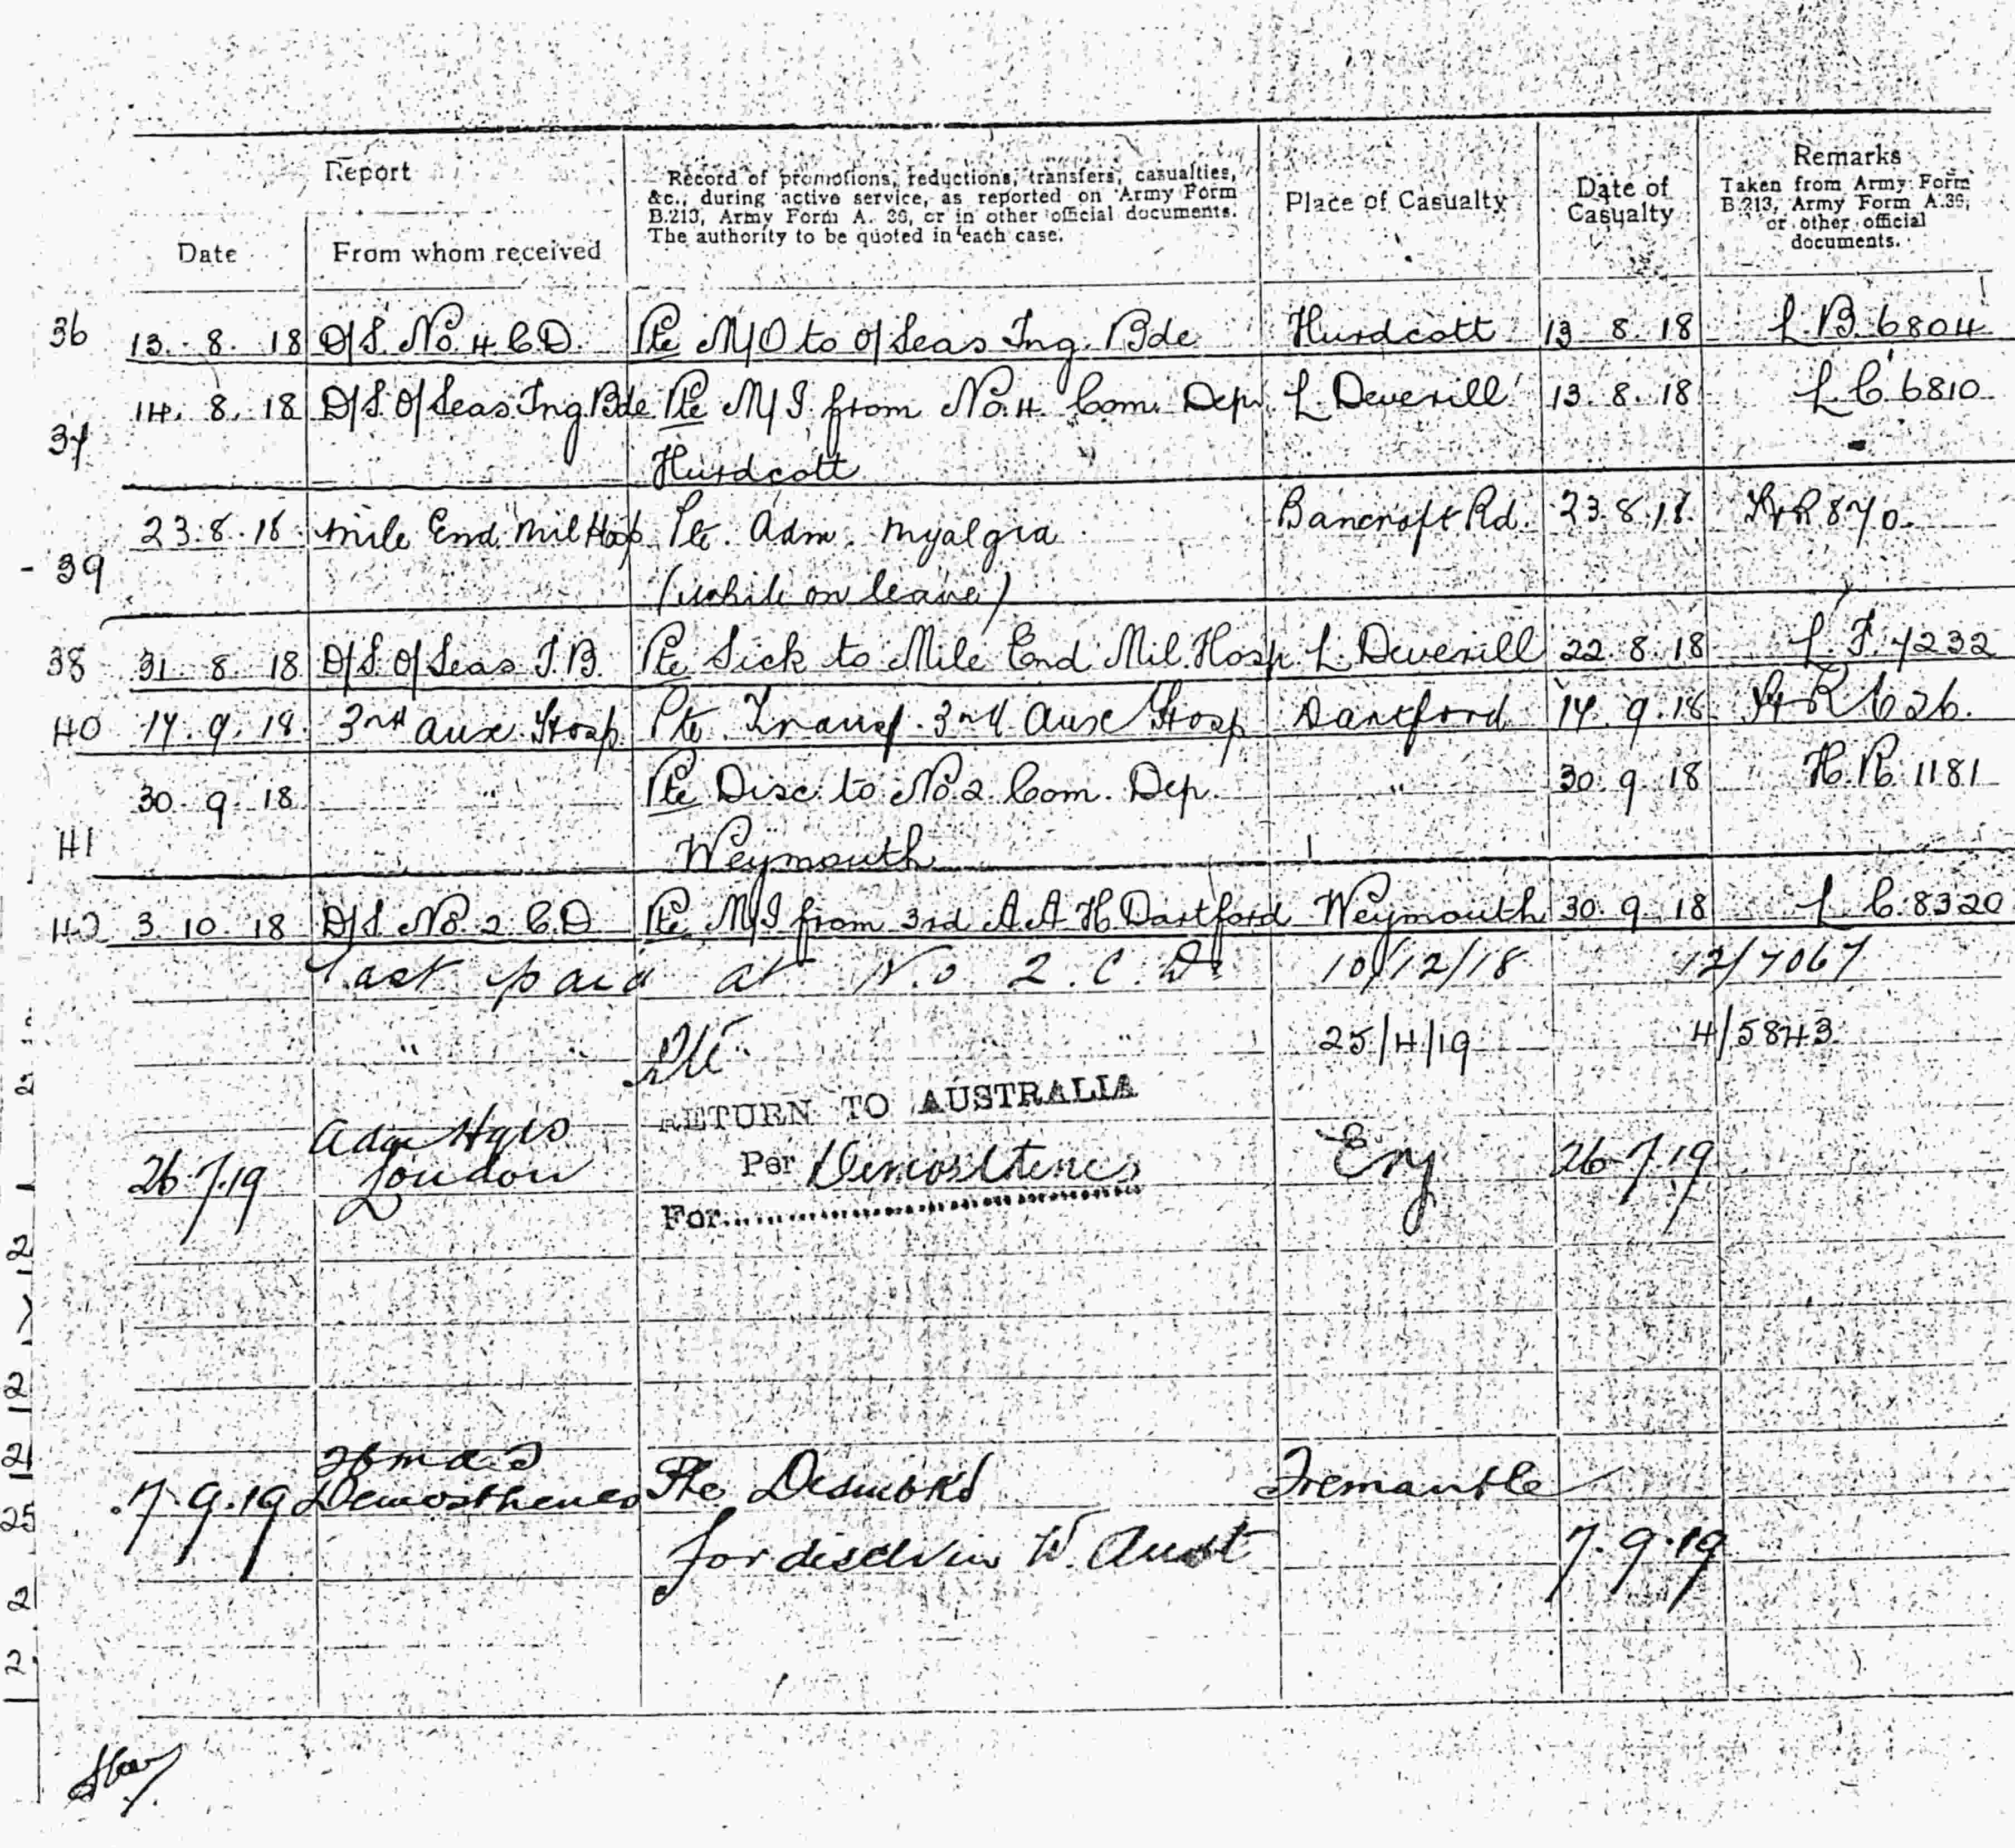 Report
Record of promotions, reductions, transfers, casualties,
&c., during active service, as reported on Army Form
B.213, Army Form A. 36, or in other official documents.
The authority to be quoted in each case.
Place of Casualty
Date of
Casualty
Remarks
Taken from Army Form
B.213, Army Form A.36,
or other official
documents.
Date
From whom received
36 13. 8. 18 D/S. No. 4 C.D. Pte M/O to O/Seas Tng. Bde Hurdcott 13 8. 18 L.B. 6804
37 14. 8. 18 D/S. O/Seas Tng. Bde Pte M/I from No. 4 Com. Dep. L. Deverill 13. 8. 18 L C 6810
Hurdcott
39 23.8.18 Mile End Mil Hosp Pte. adm. Myalgia Bancroft Rd. 23.8.18. 870
(while on leave)
38 31. 8. 18 D/S. O/Seas T.B. Pte Sick to Mile End Mil. Hosp L. Deverill 22. 8. 18 L. F. 7232
40 17. 9. 18. 3rd Aux. Hosp. Pte. Transf. 3rd Aux Hosp Dartford 17. 9. 18
30. 9. 18 " Pte Disc. to No 2 Com. Dep. " 30. 9. 18 H.R. 1181
41 Weymouth
42 3. 10. 18 D/S. No. 2 C.D Pte M/I from 3rd A.A.H. Dartford Weymouth 30. 9. 18 L C. 8320
Last paid at No. 2. C. D. 10/12/18 12/7067
" " Pte " 25/4/19 4/5843
RETURN TO AUSTRALIA
Adm Hqrs
26.7.19 London Per Demosthenes Eng 26.7.19
For
7.9.19 Demosthenes Pte Disembkd Fremantle
for disch in W. Aust 7.9.19
2
2
2
2
25
2
2